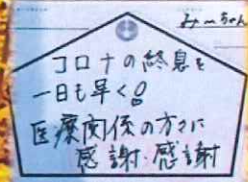 みーちゃん
コロナの終息を
一日も早く!
医療関係の方々に
感謝・感謝